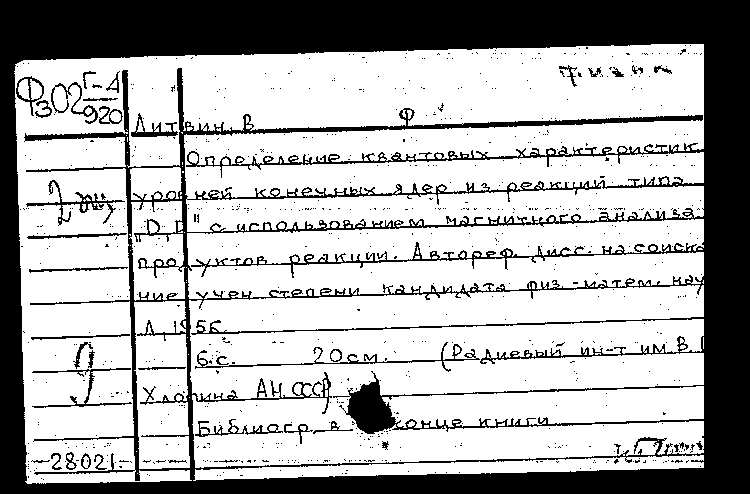 физик
Фз02 Г-Д
920
Литвин, В. Ф
Определение квантовых характеристик
уровней конечных ядер из реакций типа
"D,p" с использованием магнитного анализа
продуктов реакции. Автореф. дисс. на соиска
ние учен степени кандидата физ-матем. нау
Л, 1956.
6.с. 20см. (Радиевый ин-т им В. Г
Хлопина АН. СССР)
Библиогр. в конце книги
28021